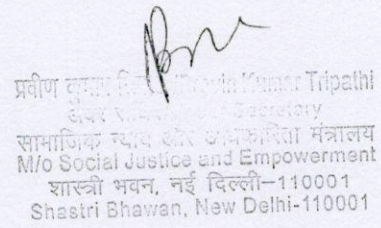 प्रवीण कुमार Kumar Tripathi
Secretary
सामाजिक न्याय और अधिकारिता मंत्रालय
M/o Social Justice and Empowerment
शास्त्री भवन, नई दिल्ली–110001
Shastri Bhawan, New Delhi-110001